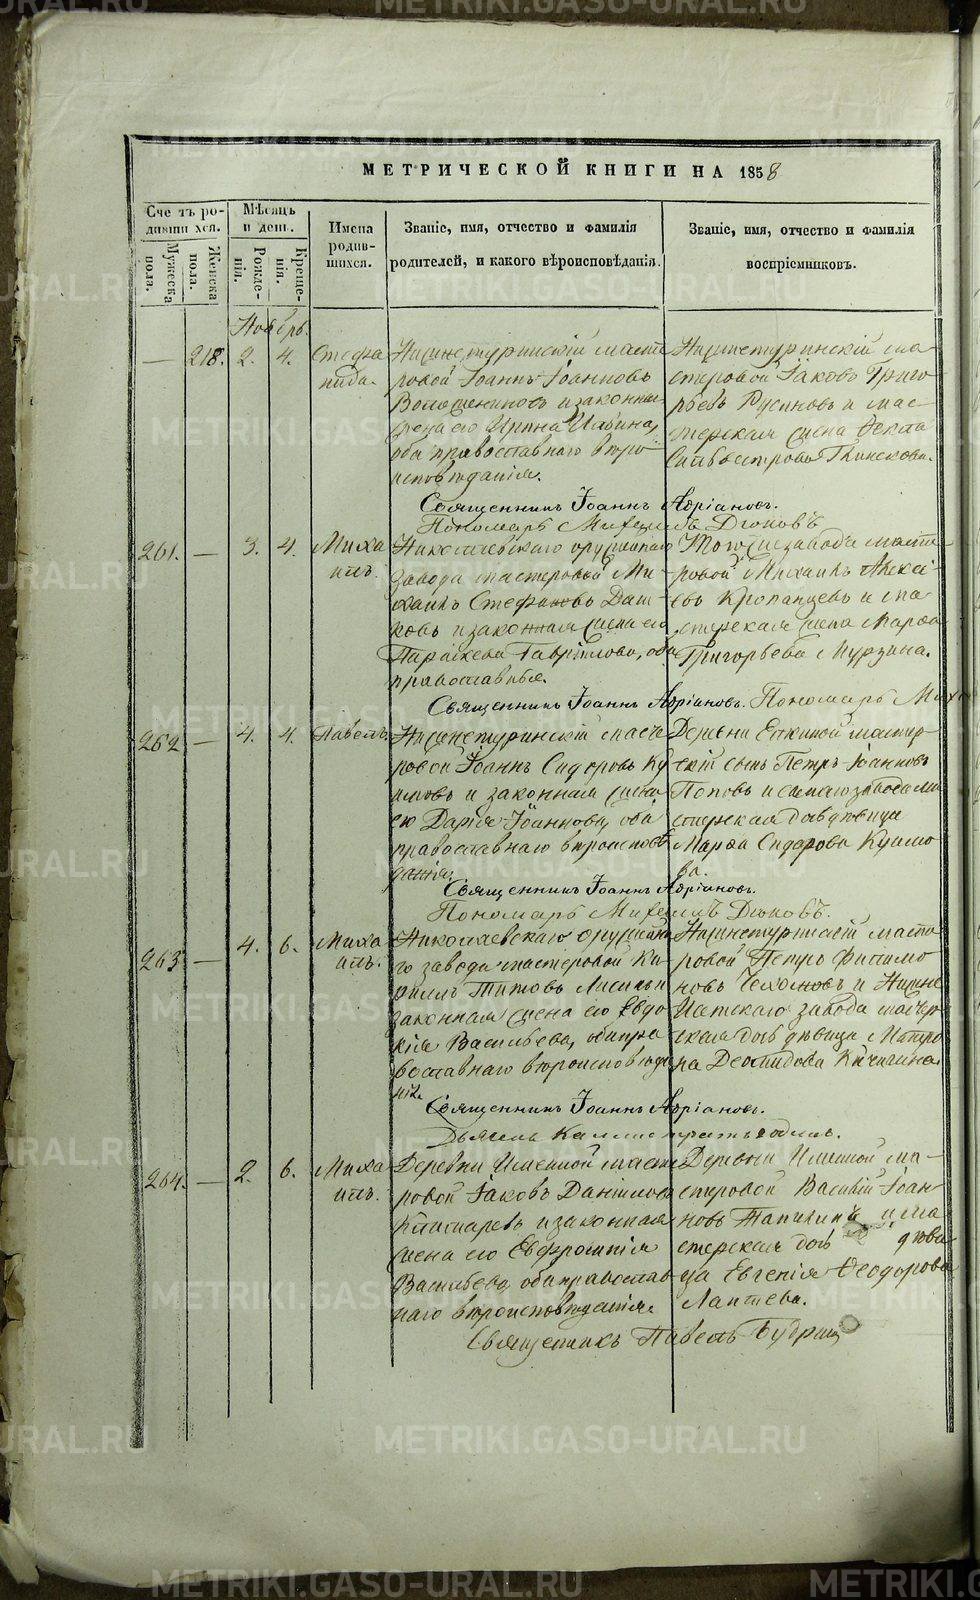 МЕТРИЧЕСКОЙ КНИГИ НА 1858
Счетъ родившихся.
Мужеска пола.
Женска пола.
Мѣсяцъ и день.
Рожденія.
Крещенія.
Имена родившихся.
Званіе, имя, отчество и фамилія родителей, и какого вѣроисповѣданія.
Званіе, имя, отчество и фамилія воспріемниковъ.
Ноябрь.
— 218. 2. 4.
Стефа
нида.
Нижнетуринскій масте
ровой Іоаннъ Іоанновъ
и законная
жена его Ирина
оба православнаго вѣро
исповѣданія.
Нижнетуринскій ма-
стеровой Іаковъ Григо-
рьевъ Русиновъ и мас-
терская жена Фекла
Сильвестрова
Священникъ Іоаннъ Адріановъ.
Пономарь Михаилъ Дюковъ
261. — 3. 4.
Миха
илъ.
Николаевскаго оружейнаго
завода мастеровый Ми-
хаилъ Стефановъ Даш-
ковъ и законная жена его
Параскева Гаврилова, оба
православные.
Того же завода масте-
ровой Михаилъ Алексѣ-
евъ и ма
стерская жена Марѳа
Григорьева Мурзина.
Священникъ Іоаннъ Адріановъ. Пономарь Миха
262 — 4. 4.
Павелъ
Нижнетуринскій масте
ровой Іоаннъ Сидоровъ Ку
и законная жена
его Дарья Іоаннова, оба
православнаго вѣроисповѣ
данія.
Деревни Елкиной мастер-
скій сынъ Петръ Іоанновъ
Поповъ и самаго завода ма
стерская дочь дѣвица
Марѳа Сидорова
ва.
Священникъ Іоаннъ Адріановъ.
Пономарь Михаилъ Дюковъ.
263 — 4. 6.
Миха
илъ.
Николаевскаго оружейна
го завода мастеровой Ки
риллъ Титовъ и
законная жена его Евдо
кія Васильева, оба пра
вославнаго вѣроисповѣда
нія.
Нижнетуринскій масте
ровой Петръ Филимо
новъ и Нижне
Исетскаго завода мастер
ская дочь дѣвица Матро
на Деомидова Кичигина.
Священникъ Іоаннъ Адріановъ.
264. — 2. 6.
Миха
илъ.
Деревни Именной масте
ровой Іаковъ Даніиловъ
и законная
жена его Евфросинія
Васильева, оба православ
наго вѣроисповѣданія.
Деревни Именной ма-
стеровой Василій Іоан-
новъ и ма
стерская дочь дѣви
ца Евгенія Ѳеодорова
Лаптева.
Священникъ Павелъ Будрин
METRIKI.GASO-URAL.RU